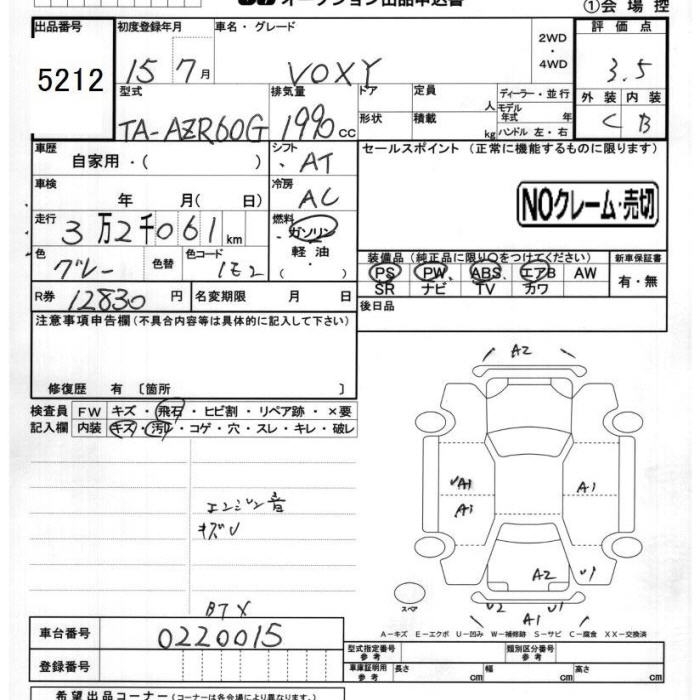 オークション出品申込書
①会場控
出品番号
5212
初度登録年月
15 7月
車名・グレード
VOXY
2WD
・
4WD
評価点
3.5
型式
TA-AZR60G
排気量
1990 cc
ドア
定員
人
ディーラー・並行
モデル年式 年
形状
積載
kg
ハンドル 左・右
外装
内装
C
B
車歴
自家用・( )
シフト
・AT
セールスポイント (正常に機能するものに限ります)
車検
年 月( 日)
冷房
AC
NOクレーム・売切
走行
3万2千061 km
燃料
・ガソリン
軽油
・
( )
色
グレー
色替
色コード
1E2
装備品 (純正品に限り○をつけてください)
新車保証書
PS PW ABS エアB AW
SR ナビ TV カワ
有・無
R券
12830 円
名変期限 月 日
後日品
注意事項申告欄 (不具合内容等は具体的に記入して下さい)
修復歴 有 〔箇所 〕
検査員
記入欄
FW キズ・飛石・ヒビ割・リペア跡・×要
内装 キズ・汚レ・コゲ・穴・スレ・キレ・破レ
エンジン音
キズU
A2
A1
A1
A1
A2
U1
U2
U1
A1
スペア
A-キズ E-エクボ U-凹み W-補修跡 S-サビ C-腐食 XX-交換済
車台番号
0220015
登録番号
型式指定番号
参考
類別区分番号
参考
車庫証明用
参考
長さ cm
幅 cm
高さ cm
希望出品コーナー (コーナーは各会場により異なります。)